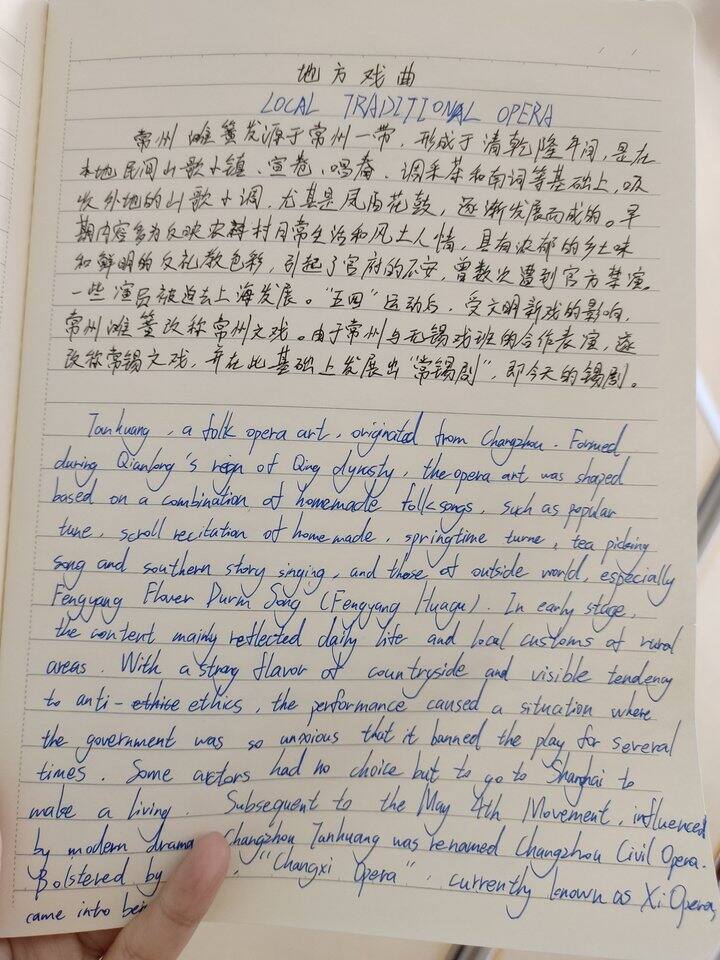 地方戏曲
LOCAL TRADITIONAL OPERA
常州滩簧发源于常州一带，形成于清乾隆年间，是在
本地民间山歌小镇、宣卷、唱春、调采茶和南词等基础上，吸
收外地的山歌小调，尤其是凤阳花鼓，逐渐发展而成的。早
期内容多为反映农村村日常生活和风土人情，具有浓郁的乡土味
和鲜明的反礼教色彩，引起了官府的不安，曾数次遭到官方禁演。
一些演员被迫去上海发展。“五四”运动后，受文明新戏的影响，
常州滩簧改称常州文戏。由于常州与无锡戏班的合作表演，遂
改称常锡文戏，并在此基础上发展出“常锡剧”，即今天的锡剧。
Tanhuang, a folk opera art, originated from Changzhou. Formed
during Qianlong's reign of Qing dynasty, the opera art was shaped
based on a combination of homemade folksongs, such as popular
tune, scroll recitation of homemade, springtime turne, tea picking
song and southern story singing, and those of outside world, especially
Fengyang Flower Durm Song (Fengyang Huagu). In early stage,
the content mainly reflected daily life and local customs of rural
areas. With a strong flavor of countryside and visible tendency
to anti-ethics, the performance caused a situation where
the government was so anxious that it banned the play for several
times. Some actors had no choice but to go to Shanghai to
make a living. Subsequent to the May 4th Movement, influenced
by modern drama Changzhou Tanhuang was renamed Changzhou Civil Opera.
Bolstered by , "Changxi Opera", currently known as Xi Opera,
came into